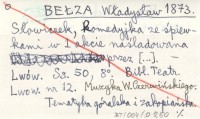 BEŁZA Władysław 1873.
Słowiczek, komedyjka ze śpiew-
kami w 1 akcie naśladowana
przez [...]. -
Lwów. Sz. 50, 8°. Bibl. Teatr.
Lwow. nr 12. Muzyka W. Czerwińskiego.
Tematyka góralska i zakopiańska.